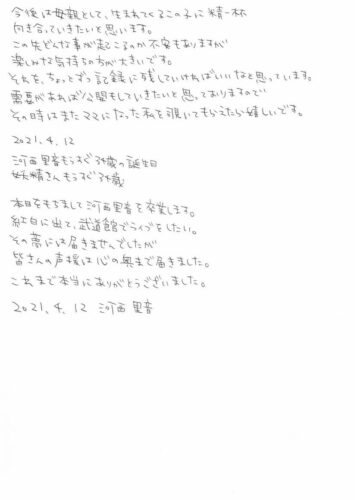 今後は母親として、生まれてくるこの子に精一杯
向き合っていきたいと思います。
この先どんな事が起こるのか不安もありますが
楽しみな気持ちの方が大きいです。
それを、ちょっとずつ記録に残していければいいなと思っています。
需要があれば公開もしていきたいと思っておりますので
その時はまたママになった私を覗いてもらえたら嬉しいです。
2021.4.12
河西里音もうすぐ34歳の誕生日
妖精さんもうすぐ34歳
本日をもちまして河西里音を卒業します。
紅白に出て、武道館でライブをしたい。
その夢には届きませんでしたが
皆さんの声援は心の奥まで届きました。
これまで本当にありがとうございました。
2021.4.12 河西里音